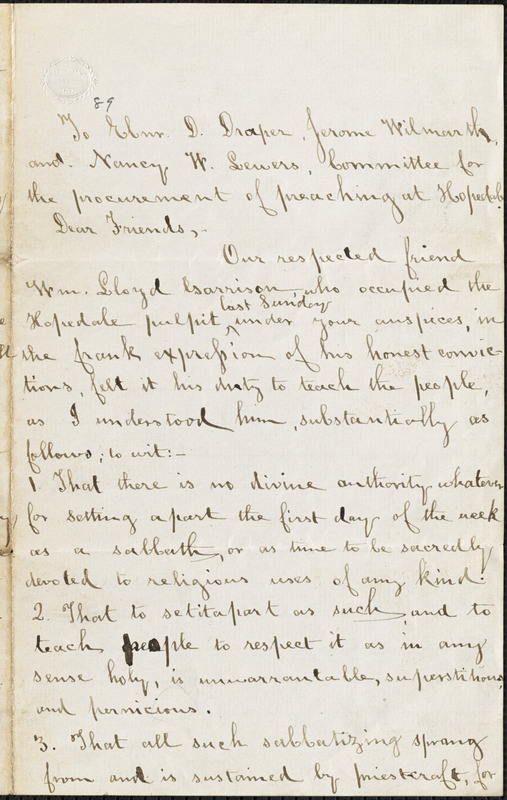 89
To Ebnr. D. Draper, Jerome Wilmarsh,
and Nancy W. Lewers, Committee for
the procurement of preaching at Hopedale
Dear Friends,-
Our respected friend
Wm. Lloyd Garrison, who occupied the
last Sunday
Hopedale pulpit ^ under your auspices, in
the frank expression of his honest convic-
tions, felt it his duty to teach the people,
as I understood him, substantially as
follows; to wit:-
1. That there is no divine authority whatever
for setting apart the first day of the week
as a sabbath, or as time to be sacredly
devoted to religious uses of any kind.
2. That to set it apart as such, and to
teach people to respect it as in any
sense holy, is unwarrantable, superstitious,
and pernicious.
3. That all such sabbatizing sprang
from and is sustained by priestcraft, for